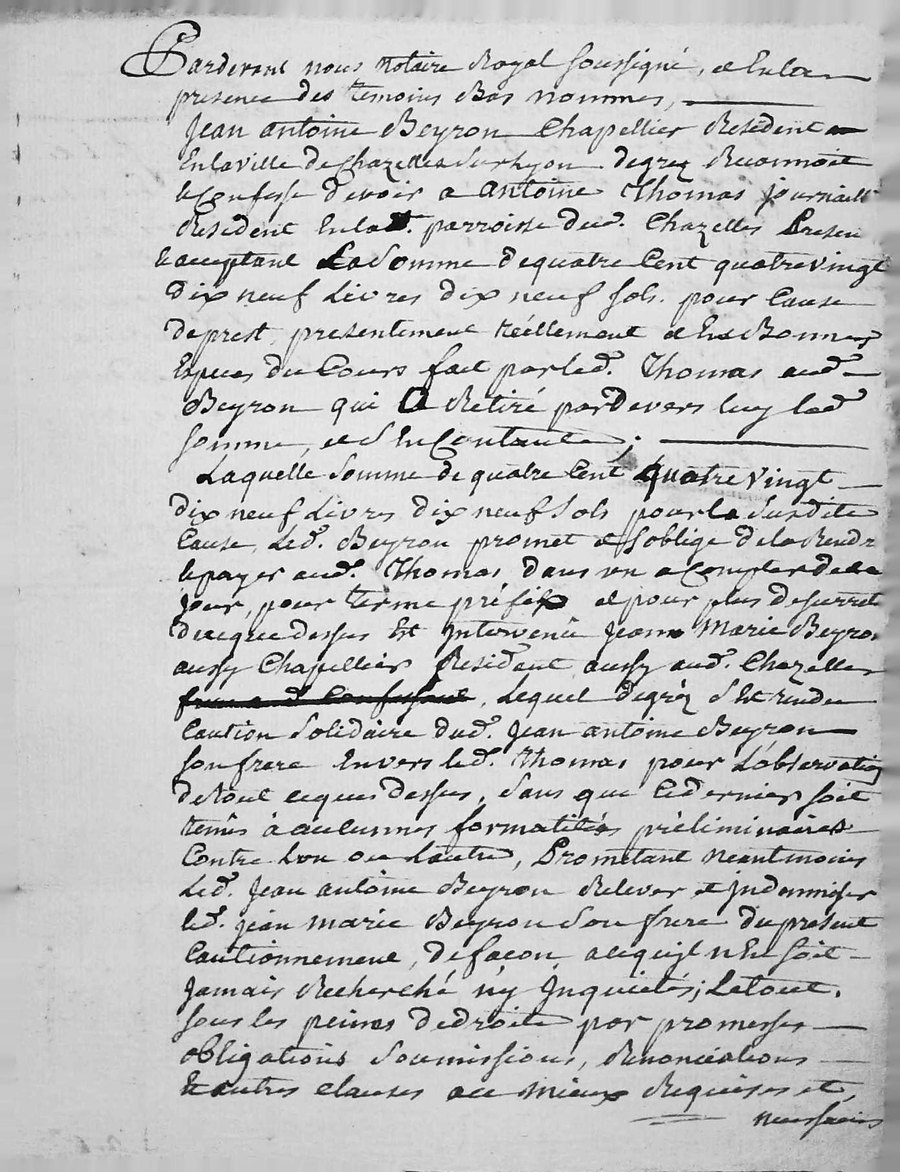 Pardevant nous notaire Royal soussigné, et En la
presence des temoins Bas nommes,
Jean antoine Beyron Chapellier Resident
En la ville de Chazelles sur Lyon de grez Reconnoit
et Confesse devoir a antoine Thomas journailler
Resident En lad. parroisse dud. Chazelles Present
et acceptant La Somme de quatre Cent quatre vingt
dix neuf Livres dix neuf sols. pour Cause
de prest, presentement réellement et En Bonnes
Especes du Cours fait par led. Thomas aud.
Beyron qui a Retiré par devers luy lad.
somme, et s'En Contante;
Laquelle somme de quatre Cent quatre vingt
dix neuf Livres dix neuf sols pour la susdite
Cause, Led. Beyron promet et s'oblige de la Rendre
et payer aud. Thomas dans un an a Compter de ce
jour, pour terme préfix et pour plus de surreté
de ce que dessus Est Intervenû Jean Marie Beyron
aussy Chapellier Resident aussy aud. Chazelles
, Lequel de gréz s'Est rendu
Caution Solidaire dud. Jean antoine Beyron
son frere Envers led. Thomas pour L'observation
de tout ce que dessus, sans que Ce dernier soit
tenûs à aucunnes formalités préliminaires
Contre L'un ou L'autre, Promettant neantmoins
Led. Jean antoine Beyron Relever et Indamniser
led. jean marie Beyron son frere du present
Cautionnement, de façon a ce qu'il n'En soit
Jamais Recherché ny Inquietés; Le tout
sous les peines de droit par promesses
obligations soumissions, Renonciations
et autres clauses au mieux Requises et
necessaires